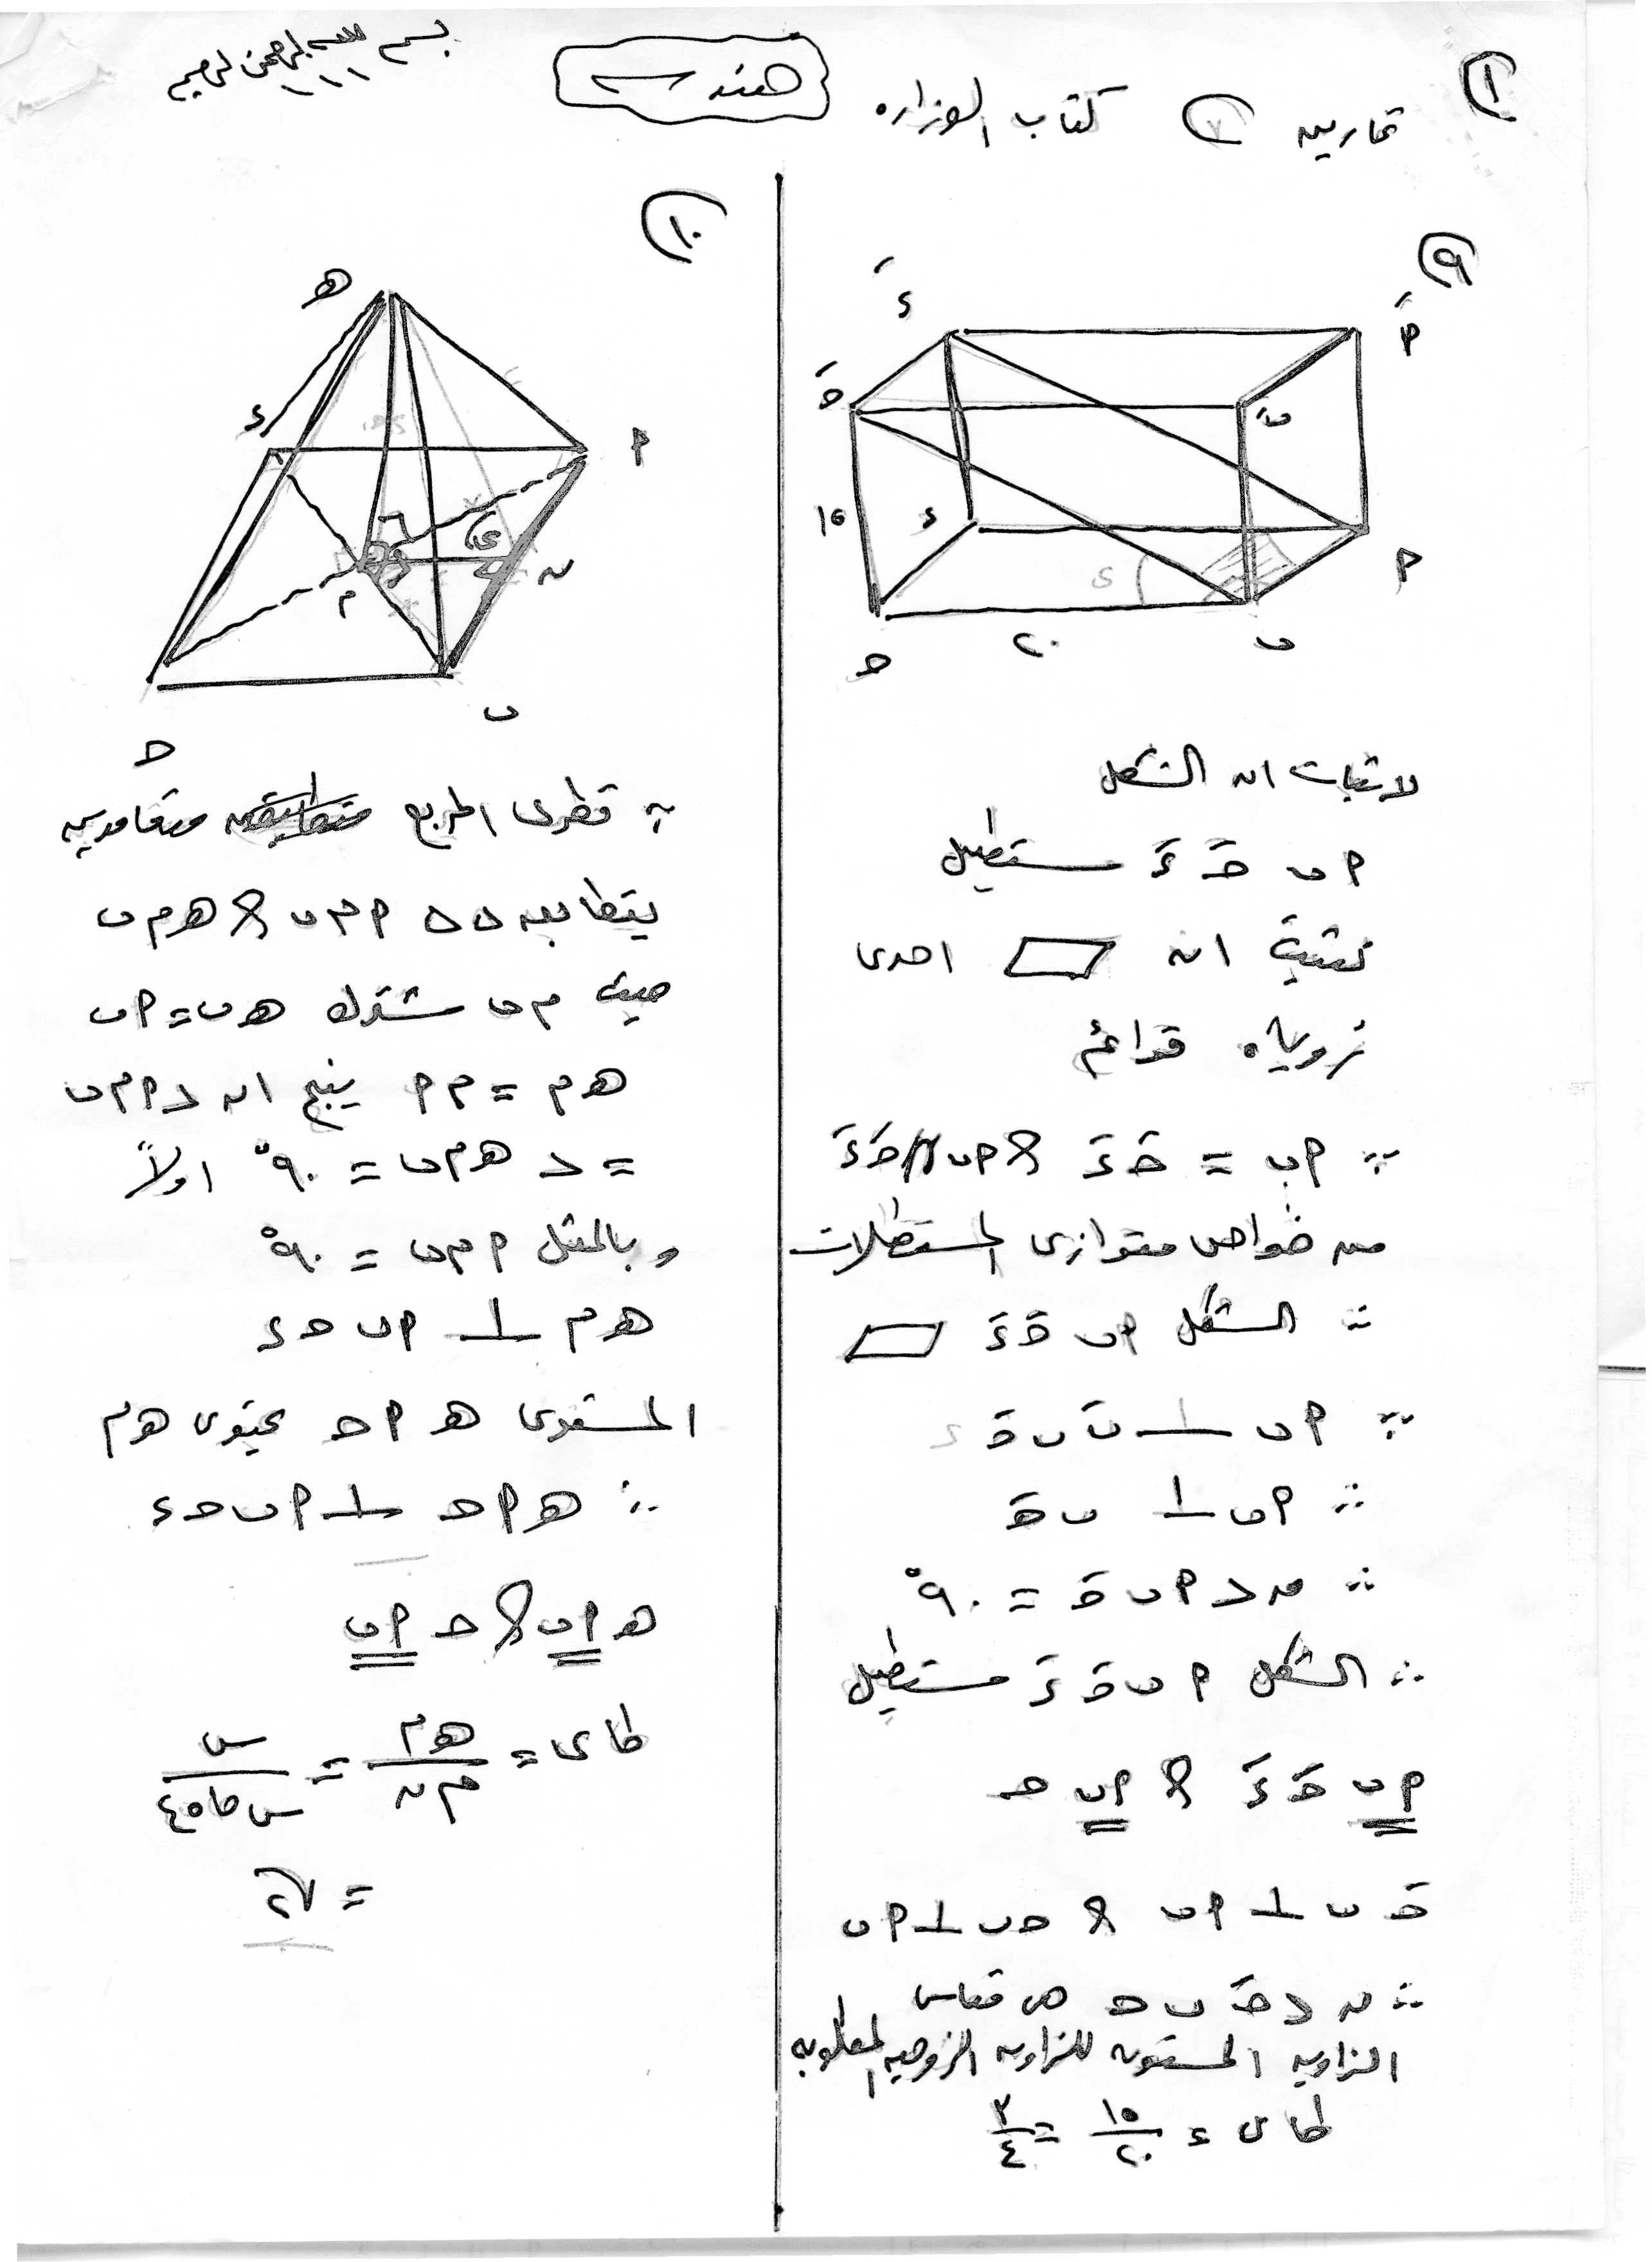 بسم الله الرحمن الرحيم
هندسة
١
تمارين ٧ كتاب الوزاره
٩
ءَ
أَ
حَ
بَ
١٥
ء
أ
ح
٢٠
ب
ى
لاثبات ان الشكل
أ ب حَ ءَ مستطيل
نثبت ان ▱ احدى
زوياه قوائم
∵ أب = حَ ءَ & أب // حَ ءَ
من خواص متوازى المستطلات
∴ الشكل أب حَ ءَ ▱
∵ أب ⊥ بَ ب حَ
∴ أب ⊥ ب حَ
∴ ق > أ ب حَ = ٩٠°
∴ الشكل أ ب حَ ءَ مستطيل
أب حَ ءَ & أب ح
حَ ب ⊥ أب & ح ب ⊥ أب
∴ ق > حَ ب ح هى قياس
الزاويه المستويه للزاويه الزوجيه المطلوبه
طاى = ١٥/٢٠ = ٣/٤
١٠
هـ
ء
أ
ى
م
ن
ب
ح
∵ قطرى المربع متعامدين
يتطابق ∆∆ أ م ب & هـ م ب
حيث م ب مشترك هـ ب = أب
هـ م = م أ ينتج ان > أ م ب
= > هـ م ب = ٩٠° اولاً
وبالمثل أ م ب = ٩٠°
هـ م ⊥ أب ح ء
المستوى هـ أ ح يحتوى هـ م
∴ هـ أ ح ⊥ أ ب ح ء
هـ أب & ح أب
طاى = هـ م/م ن = س/س حا٤٥
= √٢